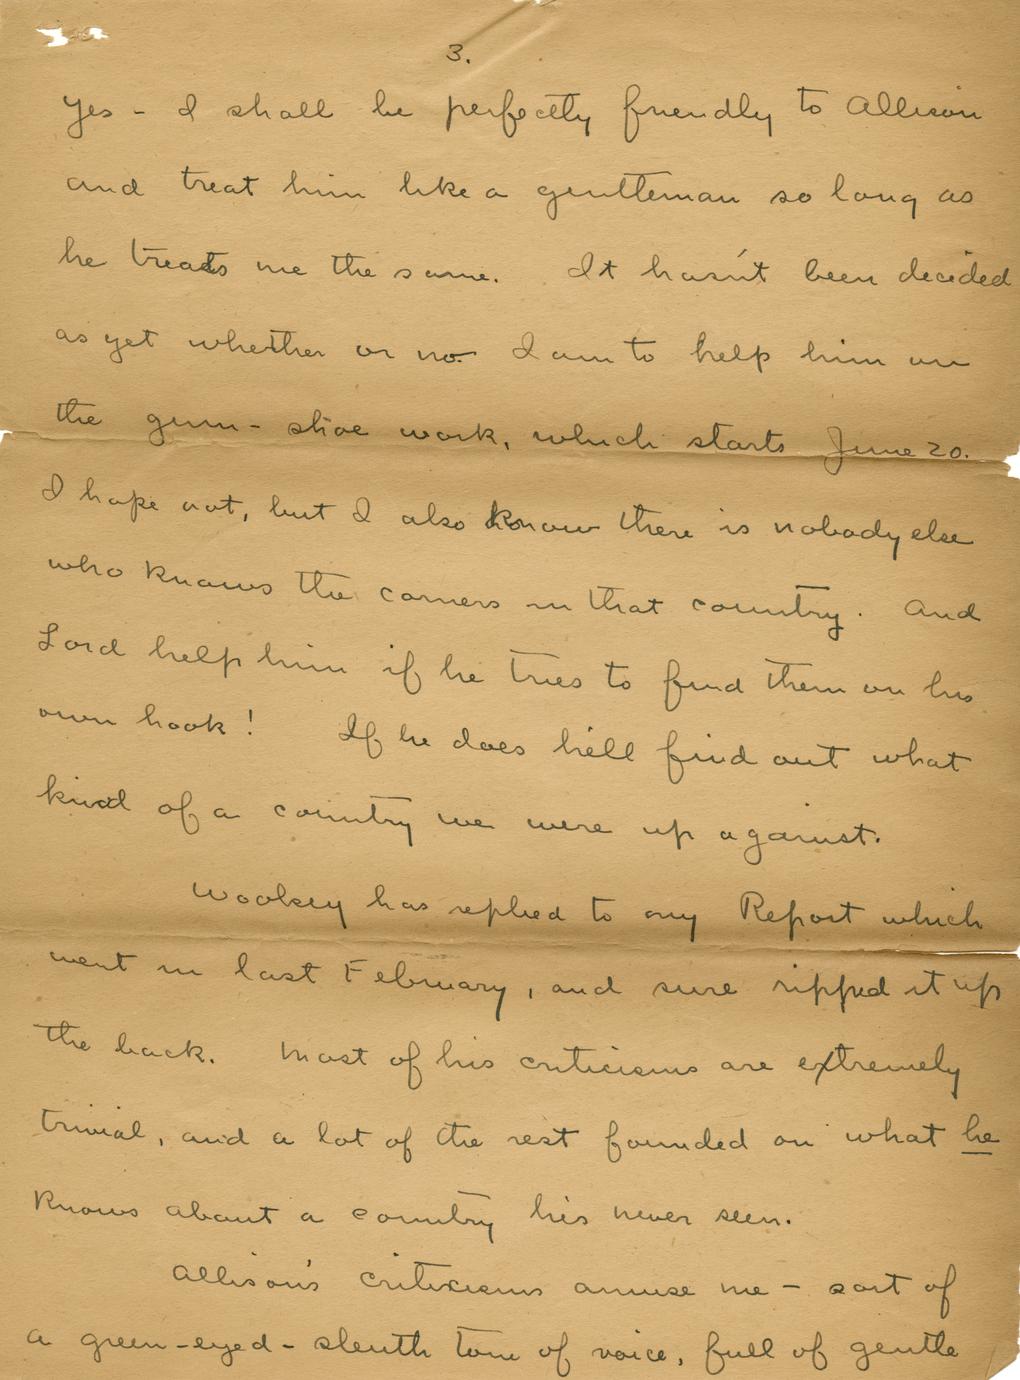 3.
Yes - I shall be perfectly friendly to Allison
and treat him like a gentleman so long as
he treats me the same. It hasn't been decided
as yet whether or no I am to help him on
the gum-shoe work, which starts June 20.
I hope not, but I also know there is nobody else
who knows the corners in that country. And
Lord help him if he tries to find them on his
own hook! If he does he'll find out what
kind of a country we were up against.
Woolsey has replied to my Report which
went in last February, and sure ripped it up
the back. Most of his criticisms are extremely
trivial, and a lot of the rest founded on what he
knows about a country his never seen.
Allison's criticisms amuse me - sort of
a green-eyed-sleuth tone of voice, full of gentle